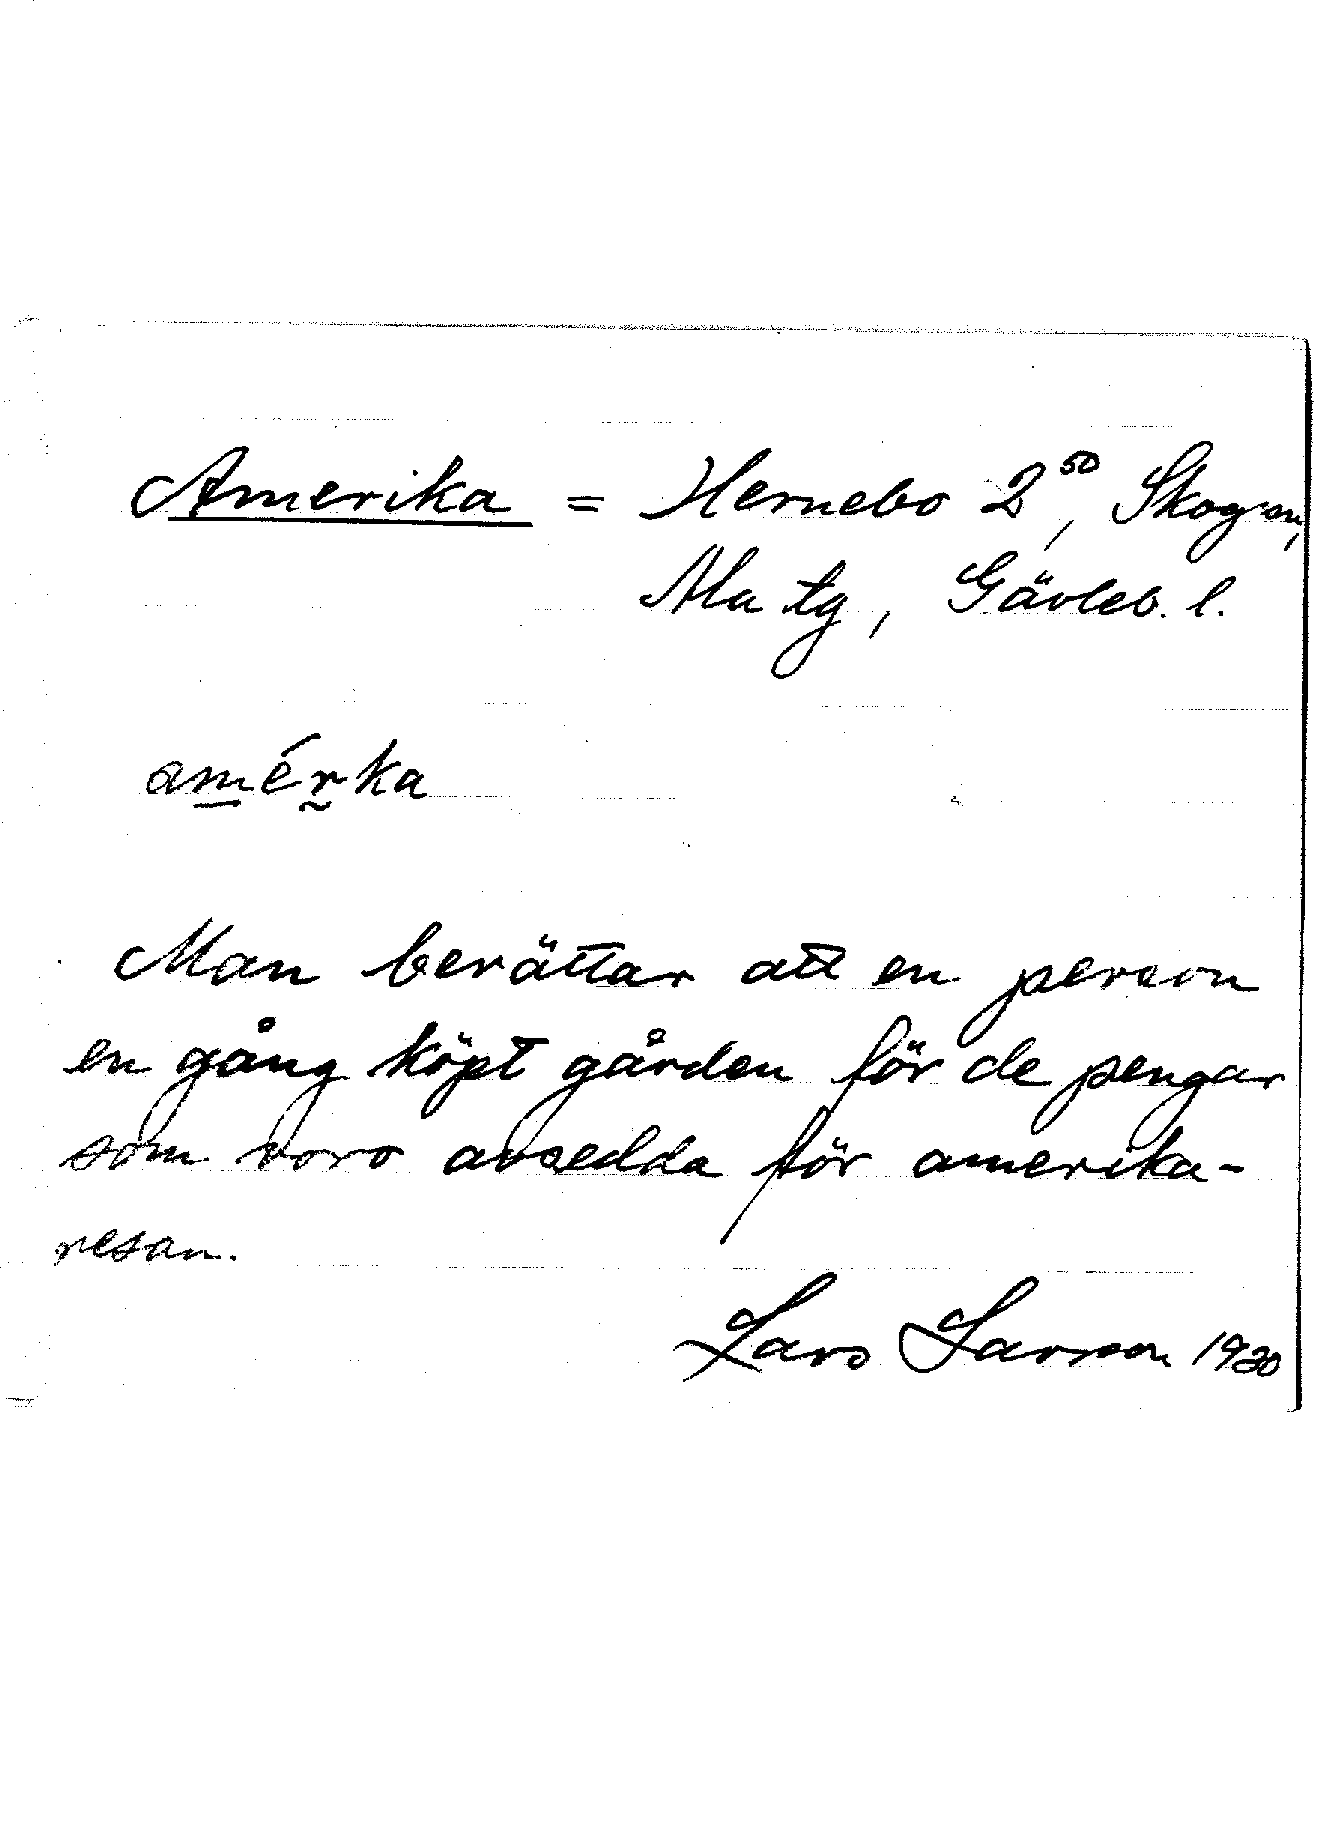 Amerika = Hernebo 2⁵⁰, Skog sn,
Ala tg, Gävleb. l.
amérka
Man berättar att en person
en gång köpt gården för de pengar
som voro avsedda för amerika-
resan.
Lars Larsson 1930